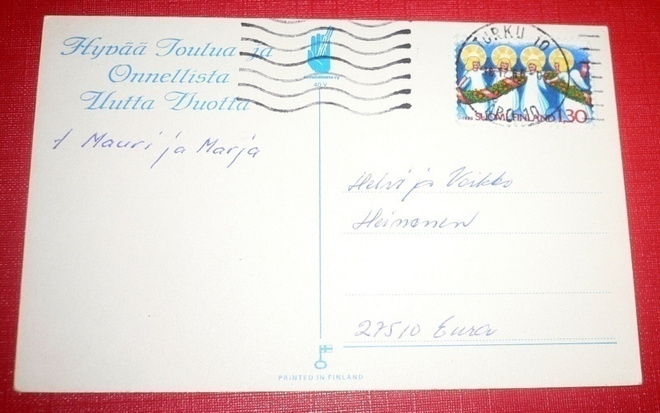 Hyvää Joulua ja
Onnellista
Uutta Vuotta
Mauri ja Marja
40 V
TURKU 10
SUOMI FINLAND 1,30
Helvi ja Voikko
Heinonen
27510 Eura
PRINTED IN FINLAND